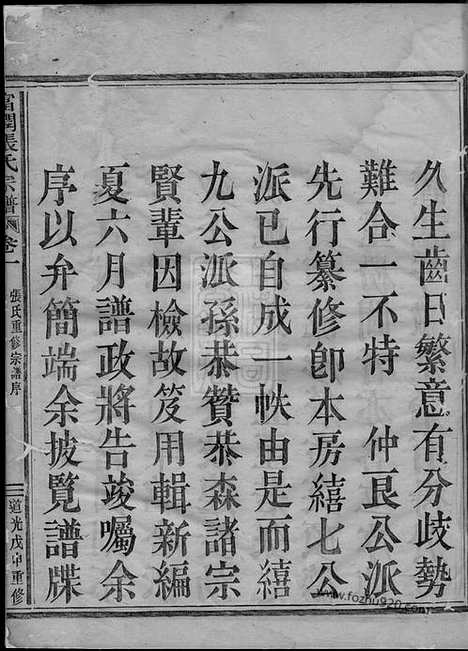 久生齒日繁意有分歧勢
難合一不特　仲艮公派
先行纂修卽本房繥七公
派已自成一帙由是而繥
九公派孫恭贊恭森諸宗
賢輩因檢故笈用輯新編
夏六月譜政將告竣囑余
序以弁簡端余披覽譜牒
張氏宗譜 卷一 張氏重修宗譜序 道光戊申重修
www.fozhu920.com